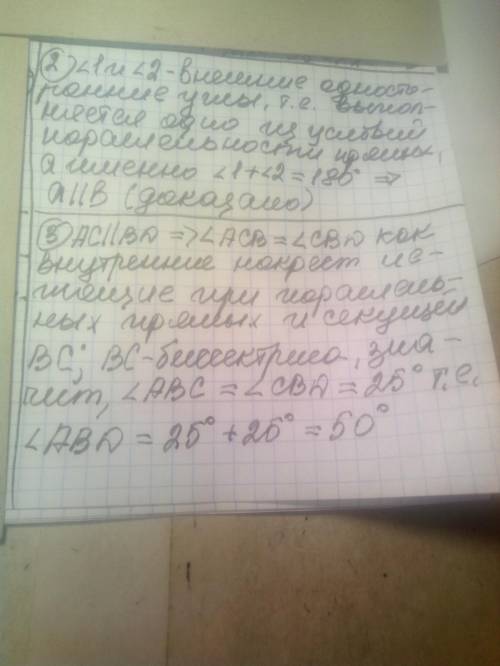 ② ∠1 и ∠2 - внешние односто-
ронние углы, т.е. выпол-
няется одно из условий
параллельности прямых,
а именно ∠1+∠2=180° ⇒
a||B (доказано)
③ AC||BD => ∠ACB = ∠CBD как
внутренние накрест ле-
жащие при параллель-
ных прямых и секущей
BC; BC-биссектриса, зна-
чит, ∠ABC = ∠CBD = 25° т.е.
∠ABD = 25° + 25° = 50°